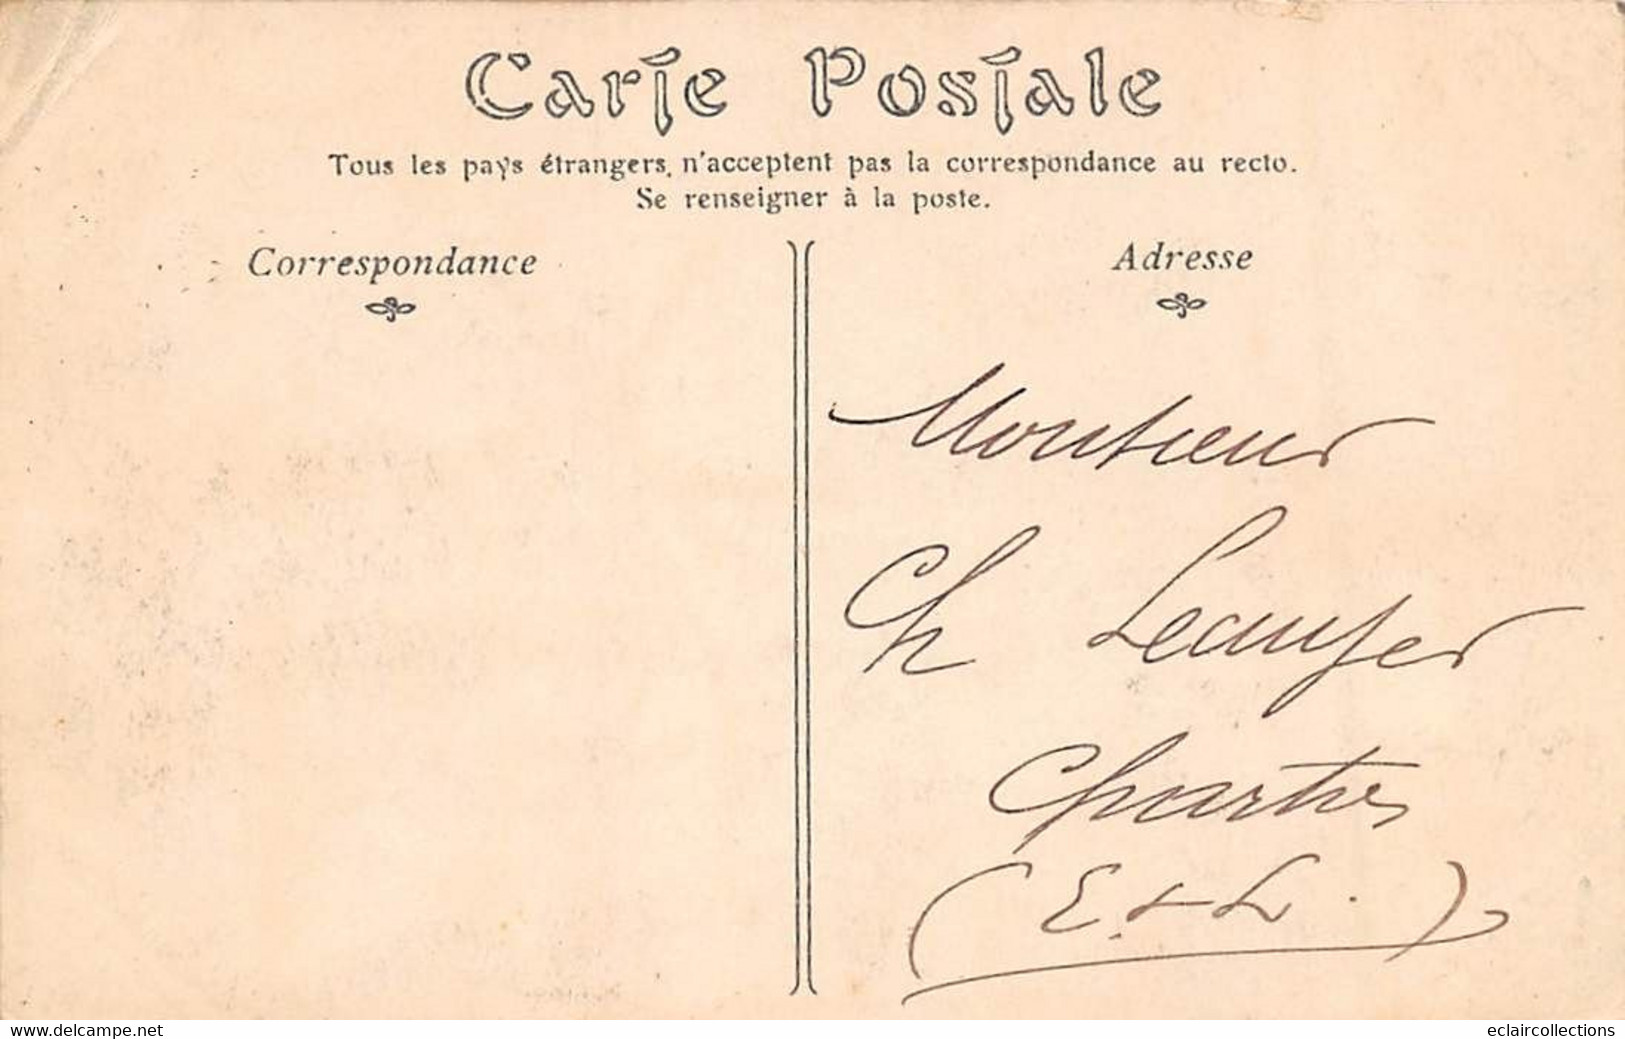 Carte Postale
Tous les pays étrangers, n'acceptent pas la correspondance au recto.
Se renseigner à la poste.
Correspondance
Adresse
Monsieur
Ch
Chartres
(E. & L. )
www.delcampe.net
eclaircollections